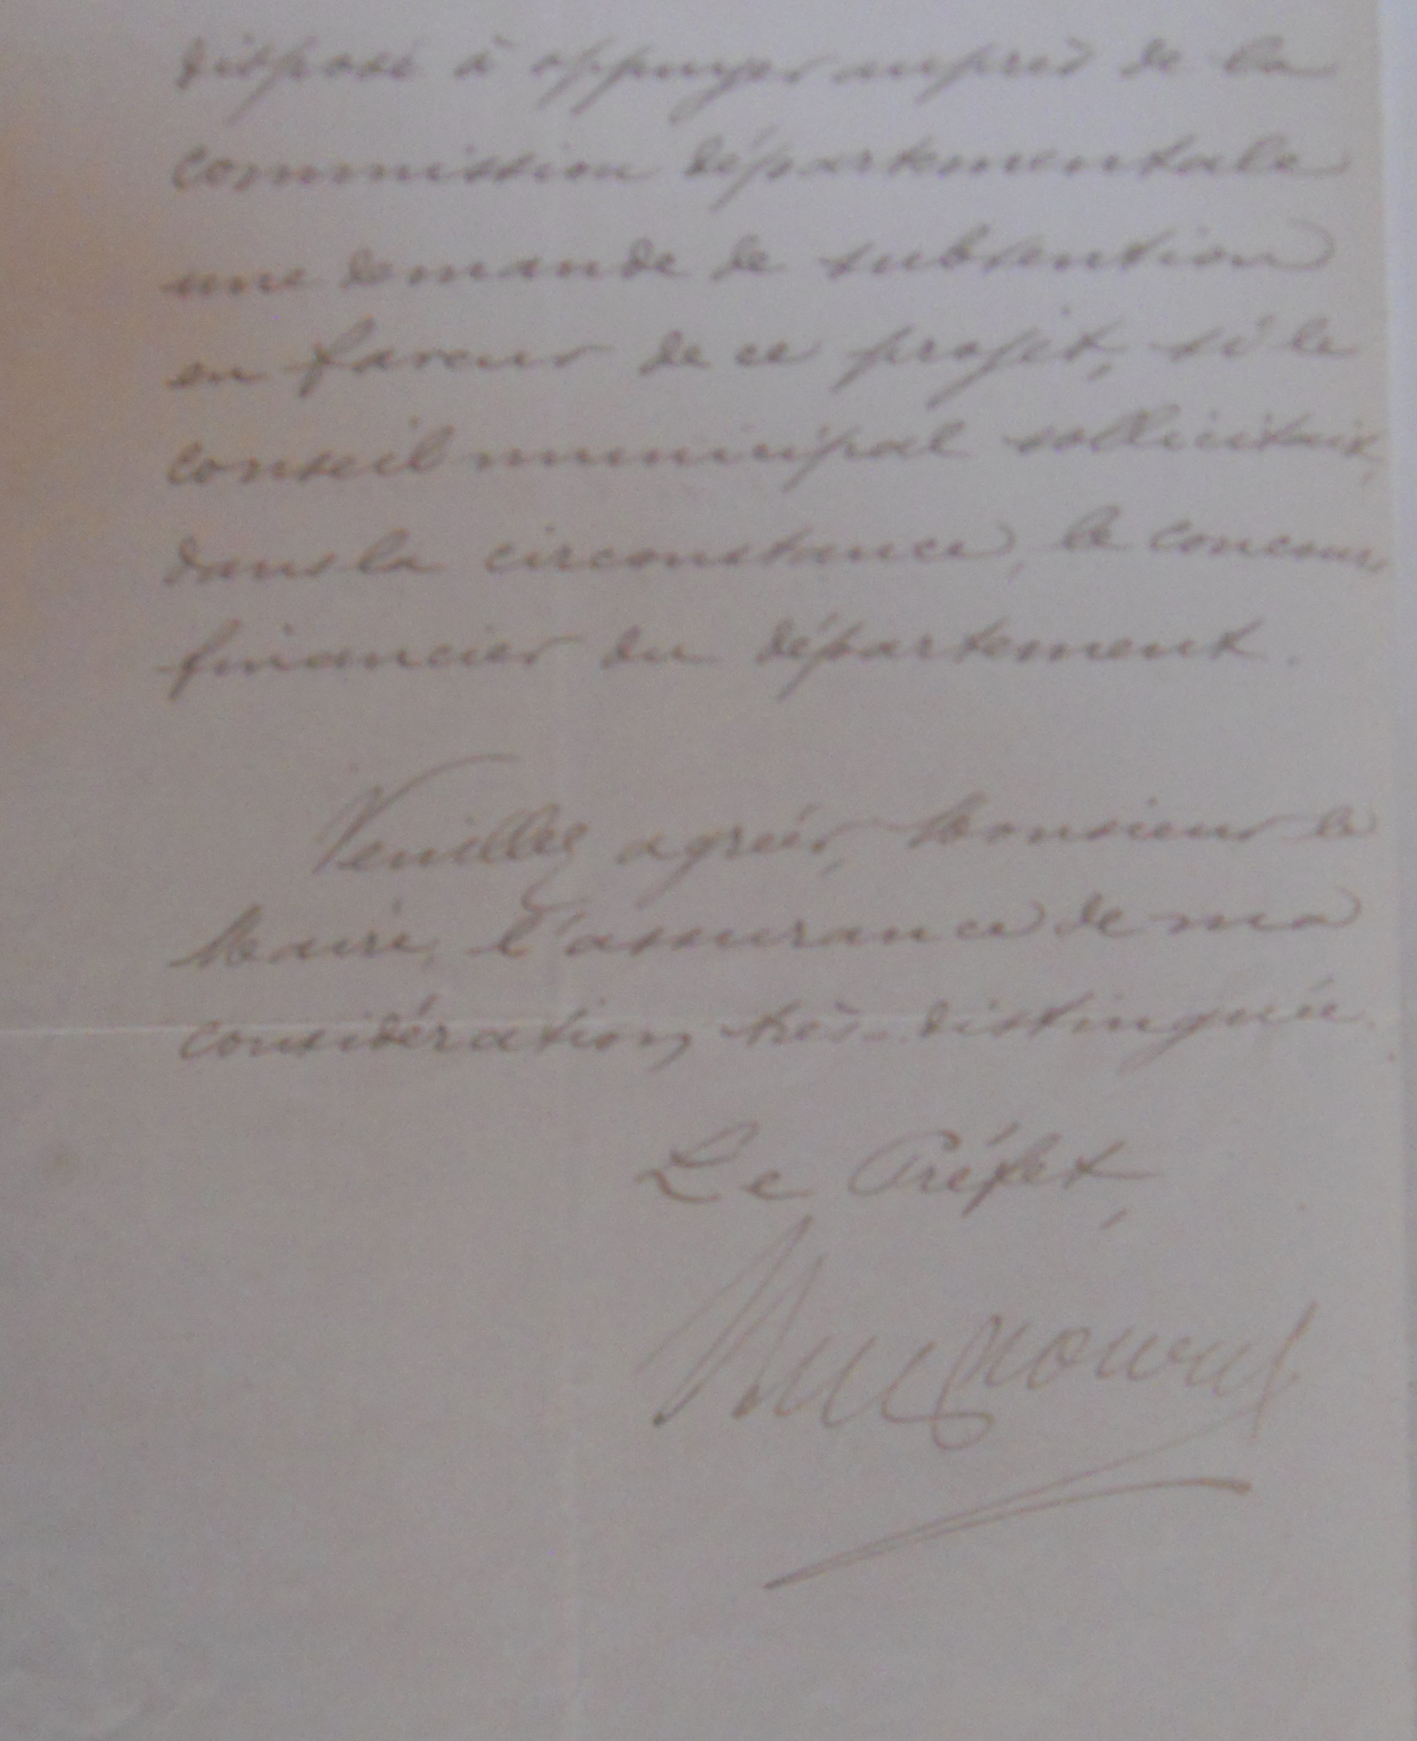 disposé à appuyer auprès de la
commission départementale
une demande de subvention
en faveur de ce projet, si le
conseil municipal sollicitait,
dans la circonstance, le concours
financier du département.
Veuillez agréer, Monsieur le
Maire, l'assurance de ma
considération très-distinguée.
Le Préfet,